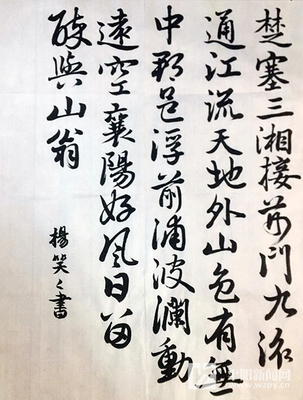 楚塞三湘接荆門九派
通江流天地外山色有無
中郡邑浮前浦波瀾動
遠空襄陽好風日留
醉與山翁
楊笑々書
阳新闻网
www.wzpy.cn